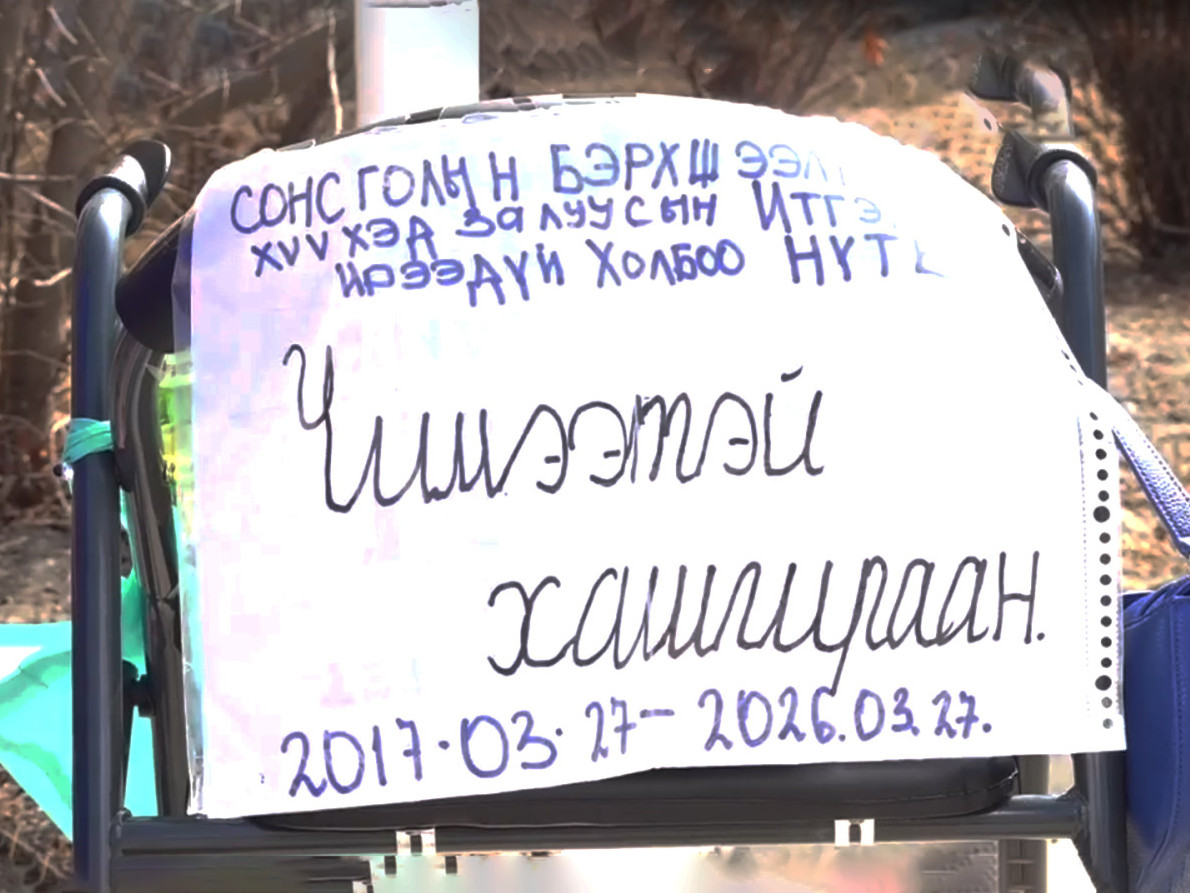 СОНСГОЛЫН БЭРХШЭЭЛТ
ХҮҮХЭД ЗАЛУУСЫН ИТГЭ
ИРЭЭДҮЙ ХОЛБОО НҮТ
Чимээтэй
хашгираан.
2017.03.27-2026.03.27.